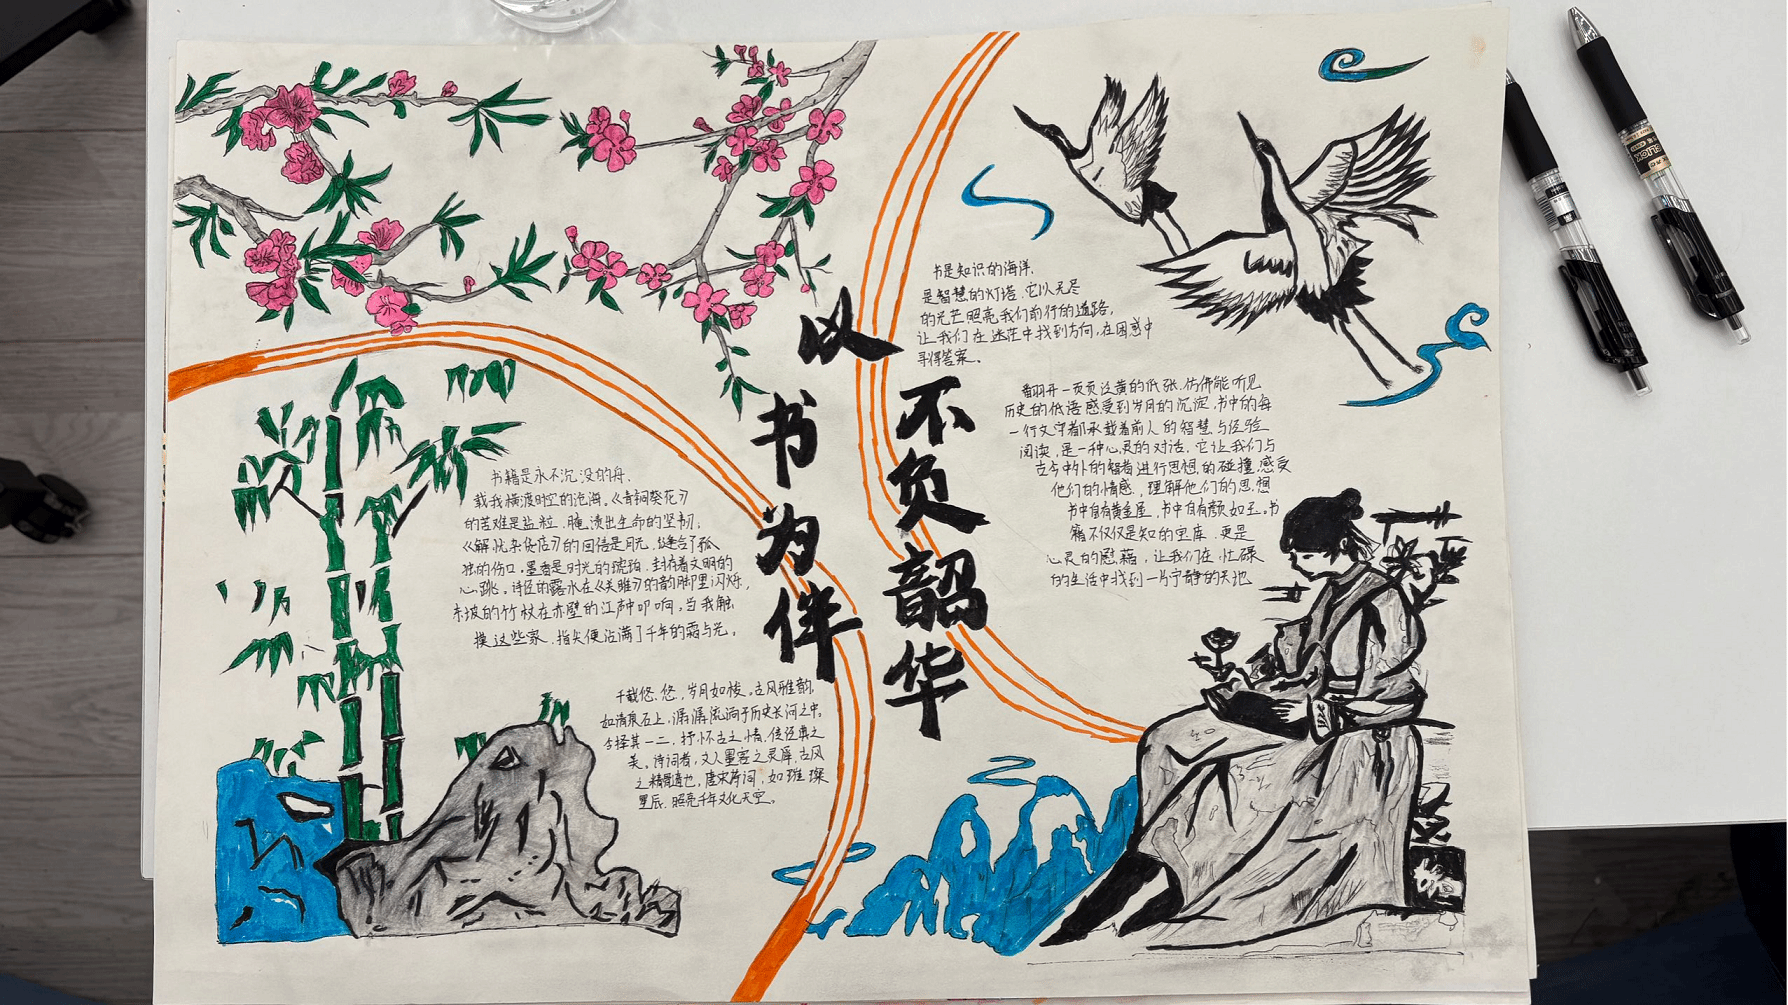 以书为伴
不负韶华
书是知识的海洋,
是智慧的灯塔,它以无尽
的光芒照亮我们前行的道路,
让我们在迷茫中找到方向,在困惑中
寻得答案。
翻开一页页泛黄的纸张,仿佛能听见
历史的低语感受到岁月的沉淀,书中的每
一行文字都承载着前人的智慧与经验
阅读,是一种心灵的对话,它让我们与
古今中外的智者进行思想的碰撞,感受
他们的情感,理解他们的思想
书中自有黄金屋,书中自有颜如玉。书
籍不仅仅是知的宝库,更是
心灵的慰藉,让我们在忙碌
的生活中找到一片宁静的天地
书籍是永不沉没的舟,
载我横渡时空的沧海。《青铜葵花》
的苦难是盐粒,腌渍出生命的坚韧,
《解忧杂货店》的回信是月光,缝合了孤
独的伤口。墨香是时光的琥珀,封存着文明的
心跳。诗经的露水在《关雎》的韵脚里闪烁,
东坡的竹杖在赤壁的江声中叩响,当我触
摸这些家,指尖便沾满了千年的霜与光。
千载悠悠,岁月如梭。古风雅韵,
如清泉石上,潺潺流淌于历史长河之中。
今择其一二,抒怀古之情,传经典之
美。诗词者,文人墨客之灵犀,古风
之精髓也,唐宋诗词,如璀璨
星辰,照亮千年文化天空。
CLICK